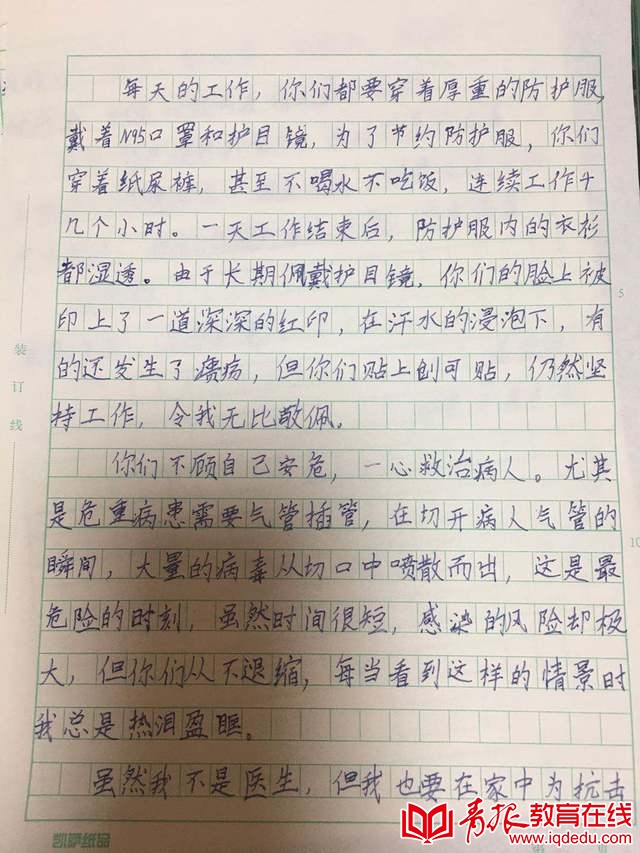 每天的工作，你们都要穿着厚重的防护服，
戴着N95口罩和护目镜，为了节约防护服，你们
穿着纸尿裤，甚至不喝水不吃饭，连续工作十
几个小时。一天工作结束后，防护服内的衣衫
都湿透。由于长期佩戴护目镜，你们的脸上被
印上了一道深深的红印，在汗水的浸泡下，有
的还发生了溃疡，但你们贴上创可贴，仍然坚
持工作，令我无比敬佩。
你们不顾自己安危，一心救治病人。尤其
是危重病患需要气管插管，在切开病人气管的
瞬间，大量的病毒从切口中喷散而出，这是最
危险的时刻，虽然时间很短，感染的风险却极
大，但你们从不退缩，每当看到这样的情景时
我总是热泪盈眶。
虽然我不是医生，但我也要在家中为抗击
装订线
5
10
凯萨纸品
第
页
青报教育在线
www.iqdedu.com